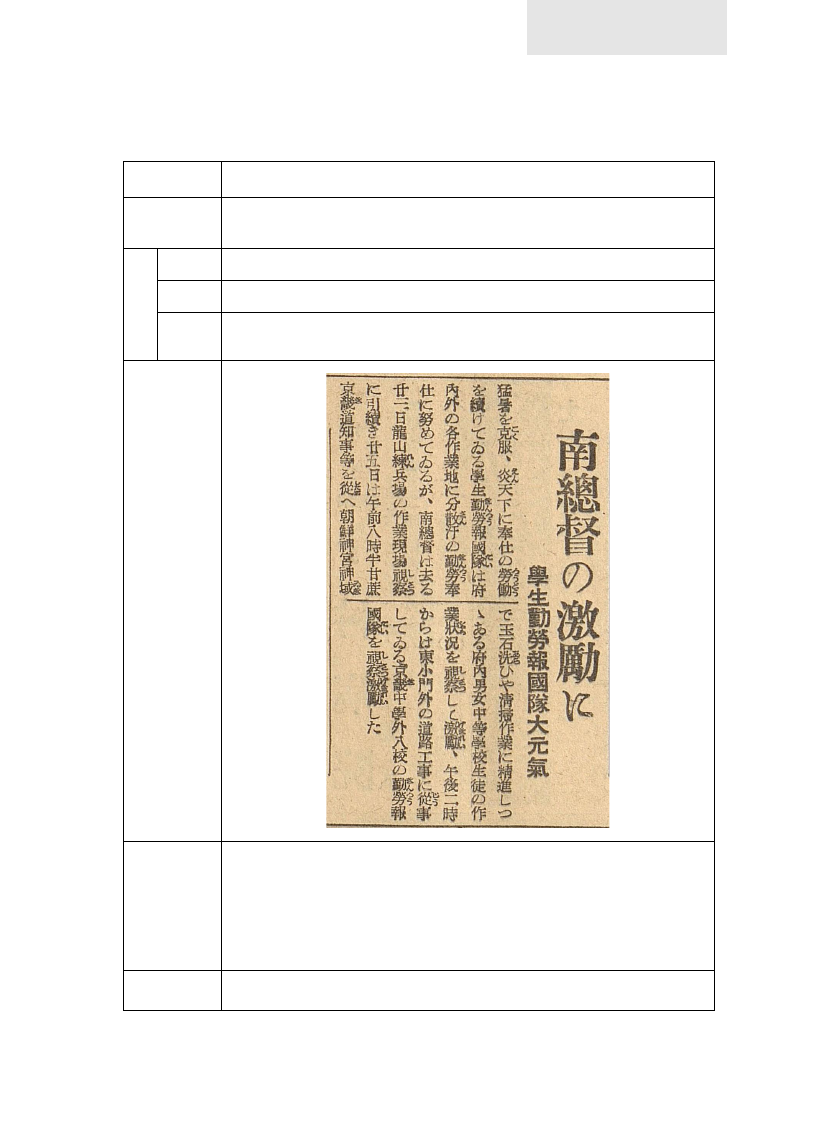 南總督の激勵に
學生勤勞報國隊大元氣
猛暑を克服、炎天下に奉仕の勞働
を續けてゐる學生勤勞報國隊は府
內外の各作業地に分散汗の勤勞奉
仕に努めてゐるが、南總督は去る
廿二日龍山練兵場の作業現場視察
に引續き廿五日は午前八時半甘蔗
京畿道知事等を從へ朝鮮神宮神域
で玉石洗ひや淸掃作業に精進しつ
ゝある府內男女中等學校生徒の作
業狀況を視察して激勵、午後二時
からは東小門外の道路工事に從事
してゐる京畿中學外八校の勤勞報
國隊を視察激勵した